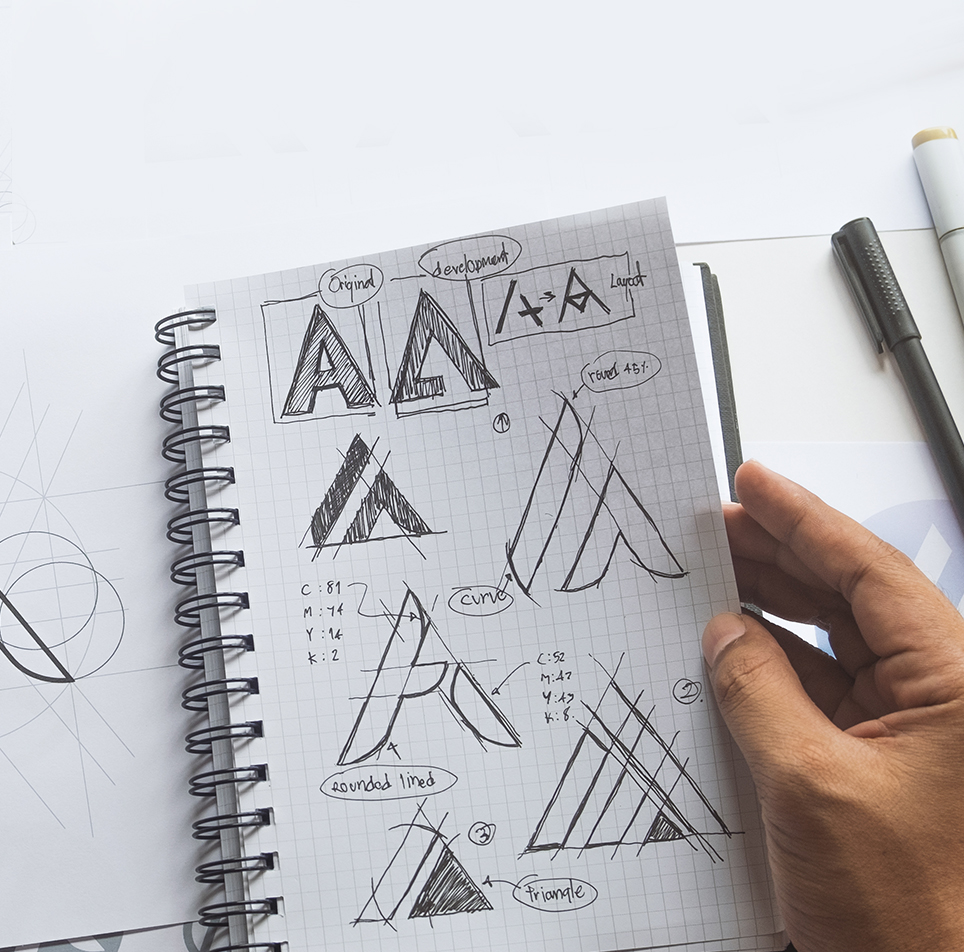 Original
development
Layout
round 45%
1
curve
C : 81
M : 74
Y : 14
K : 2
C : 52
M : 42
Y : 43
K : 8
2
rounded lined
3
triangle